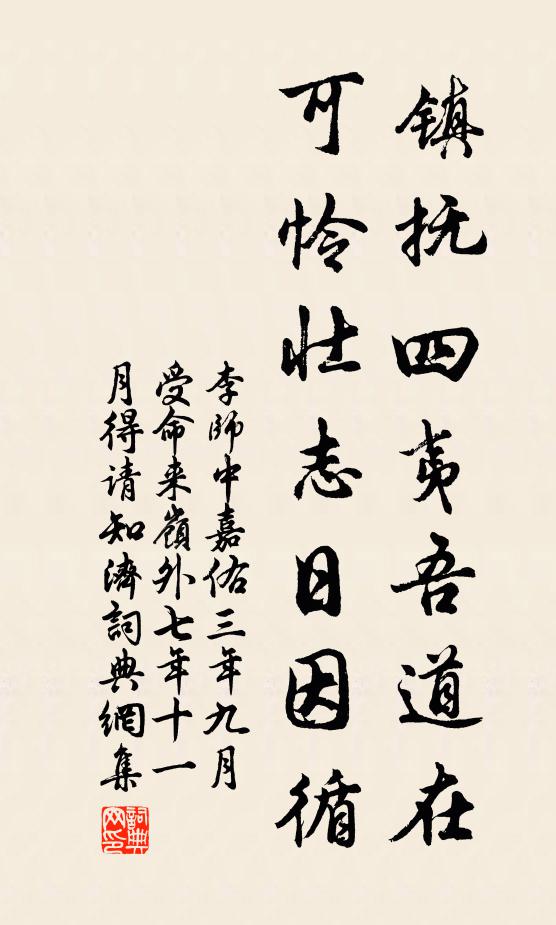 镇抚四夷吾道在
可怜壮志日因循
李師中嘉佑三年九月
受命来嶺外七年十一
月得请知濟詞典網集
詞典
网印